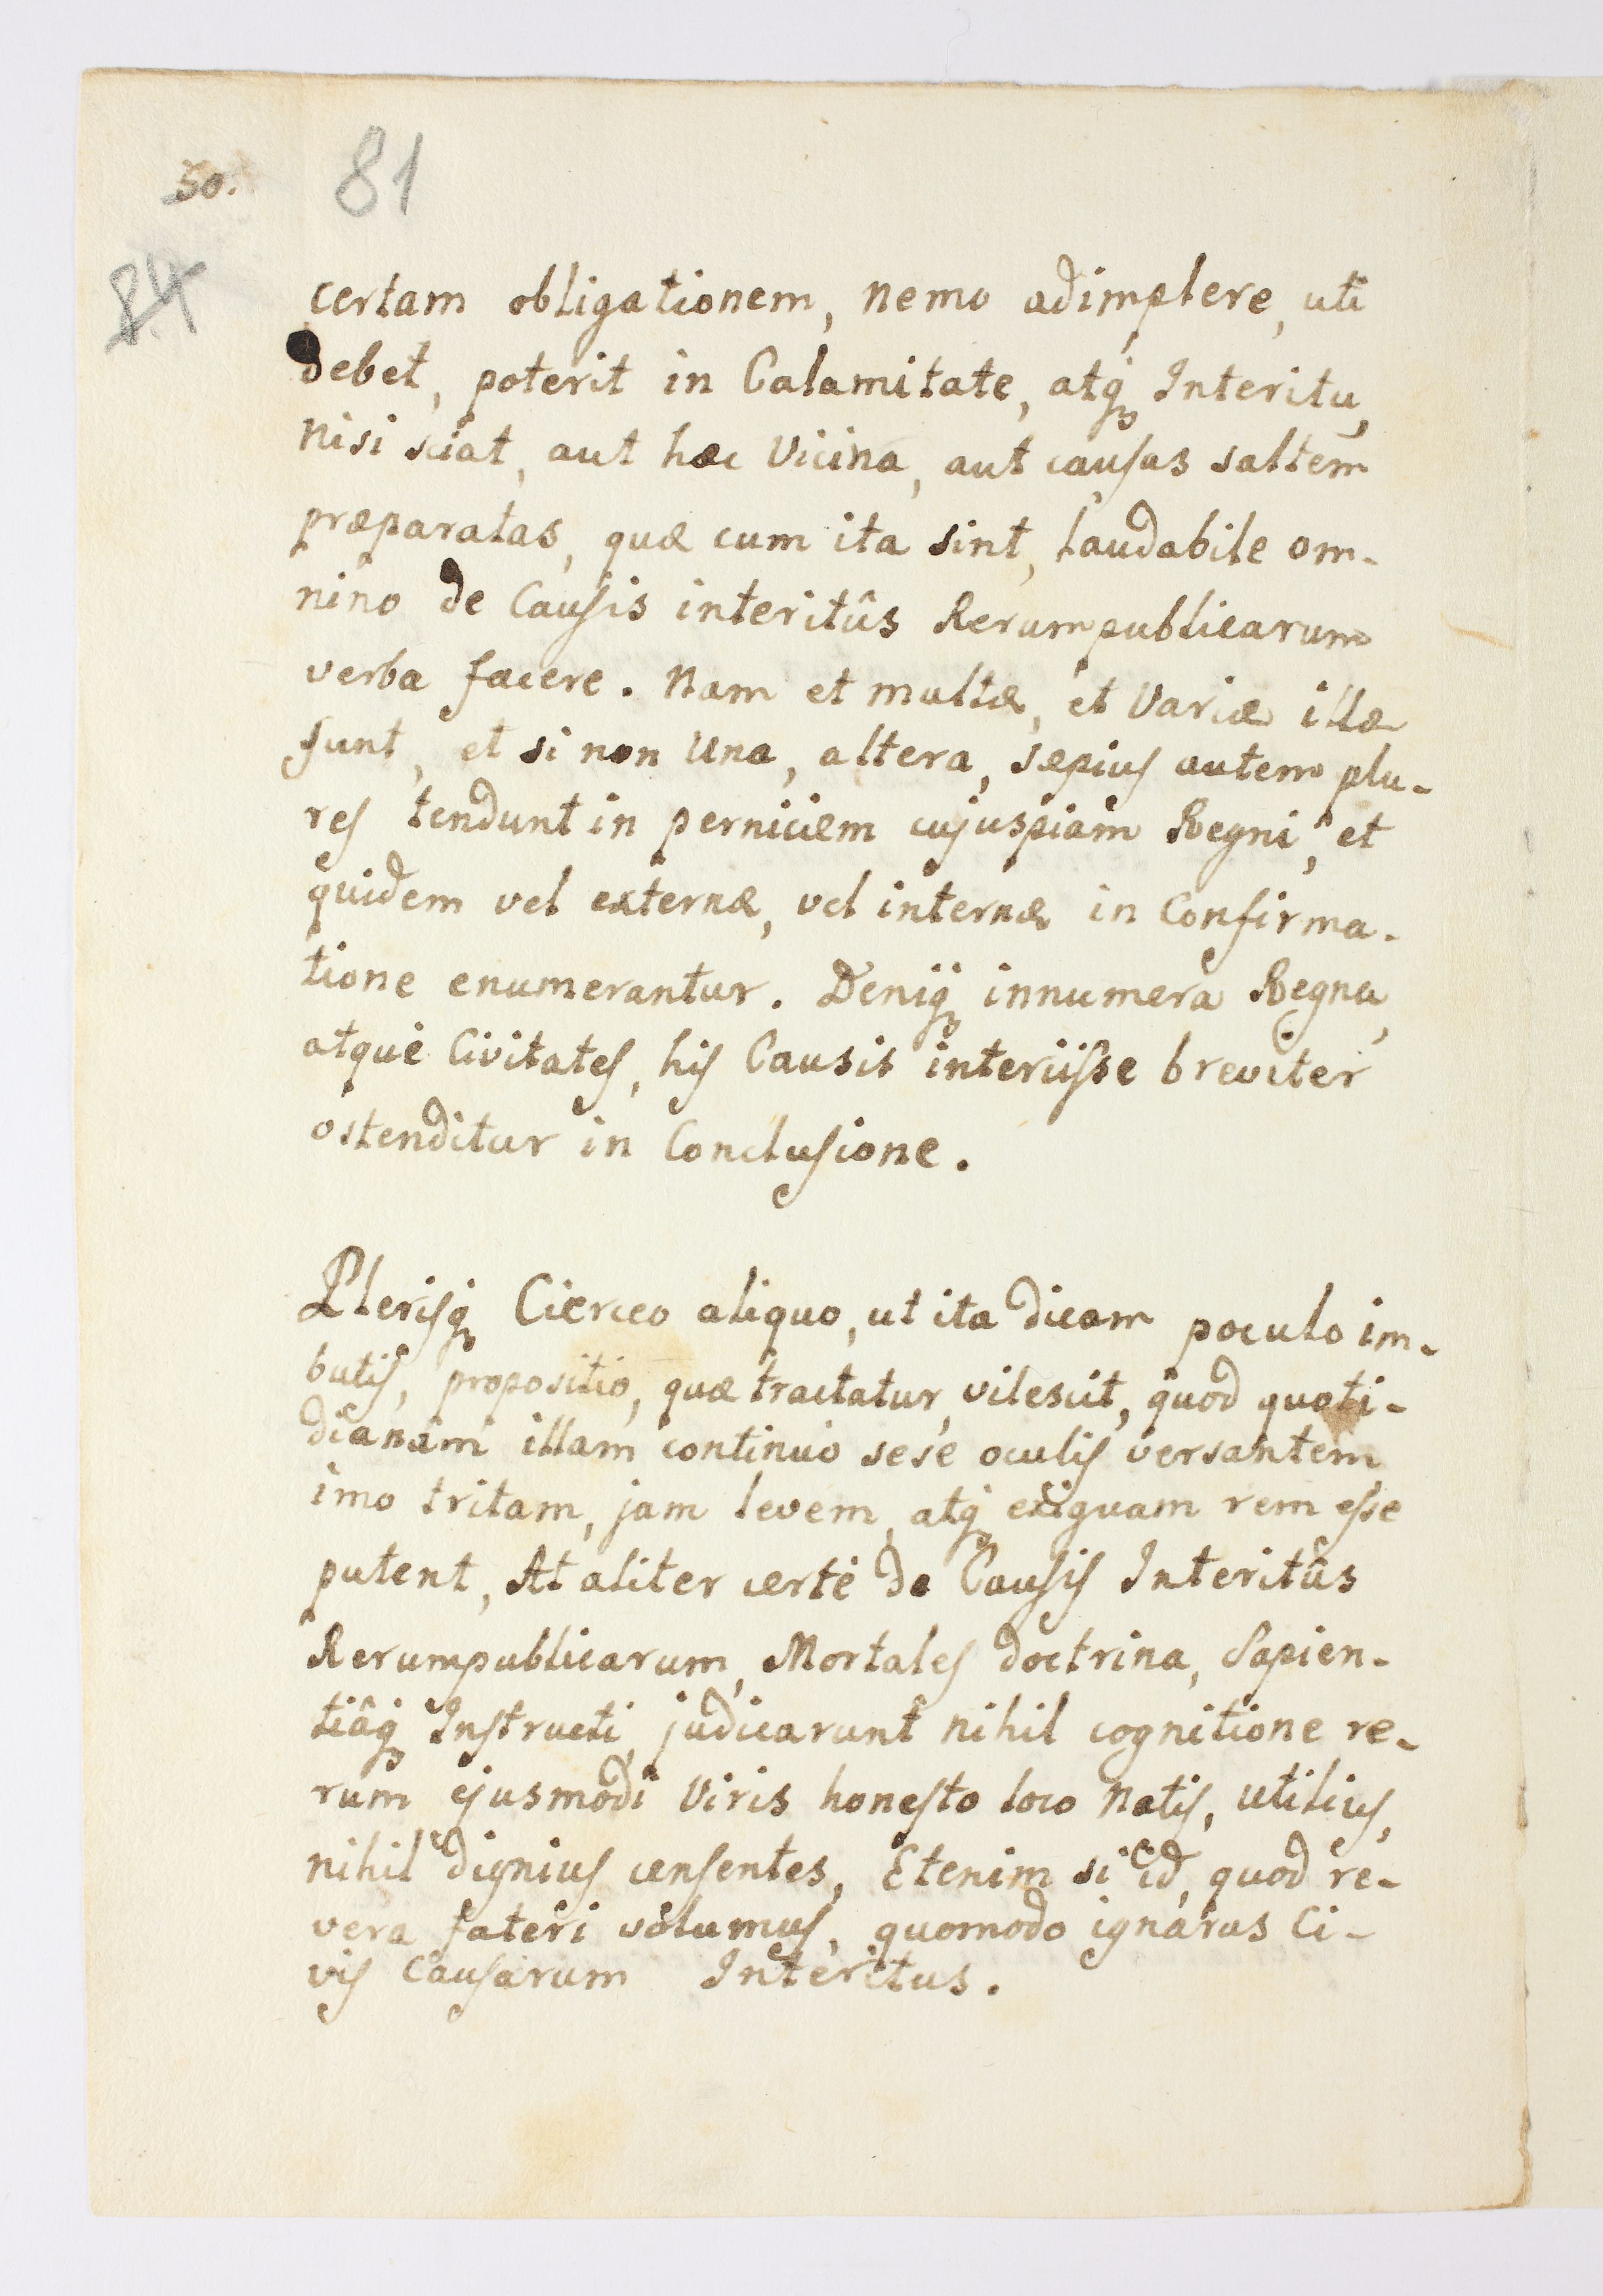 50.
81
84
certam obligationem, nemo adimplere, uti
debet, poterit in Calamitate, atq; Interitu,
nisi sciat, aut hæc Vicina, aut causas saltem
præparatas, quæ cum ita sint, laudabile om-
nino de Causis interitûs Rerumpublicarum
verba facere. Nam et multæ, et Variæ illæ
sunt, et si non Una, altera, sæpius autem plu-
res tendunt in perniciem cujuspiam Regni, et
quidem vel externæ, vel internæ in Confirma-
tione enumerantur. Deniq; innumera Regna,
atque Civitates, his Causis interiisse breviter
ostenditur in Conclusione.
Plerisq; Cierceo aliquo, ut ita dicam poculo im-
butis, propositio, quæ tractatur, vilescit, quod quoti-
dianam illam continuo sese oculis versantem
imo tritam, jam levem, atq; exiguam rem esse
putent, At aliter certe de Causis Interitûs
Rerumpublicarum, Mortales doctrina, Sapien-
tiâq; Instructi, judicarunt nihil cognitione re-
rum ejusmodi Viris honesto loco Natis, utilius,
nihil dignius censentes, Etenim si id, quod re-
vera fateri volumus, quomodo ignarus Ci-
vis Causarum Interitus.